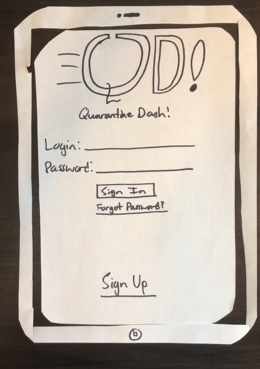 QD!
Quarantine Dash!
Login:
Password:
Sign In
Forgot Password?
Sign Up